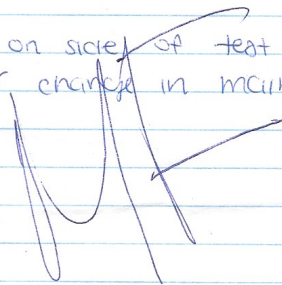 on sides of test
change in
MF